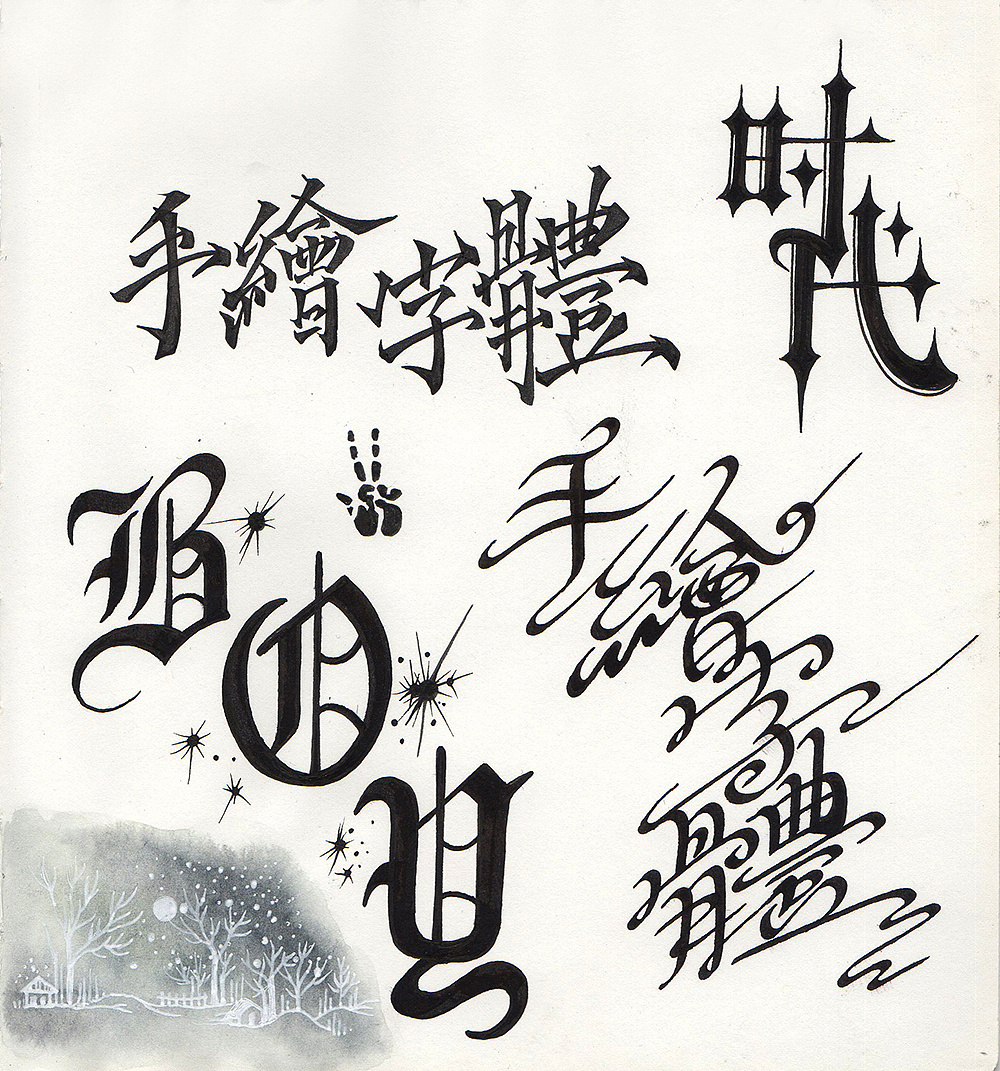 手繪字體
时代
BOY
手繪字體